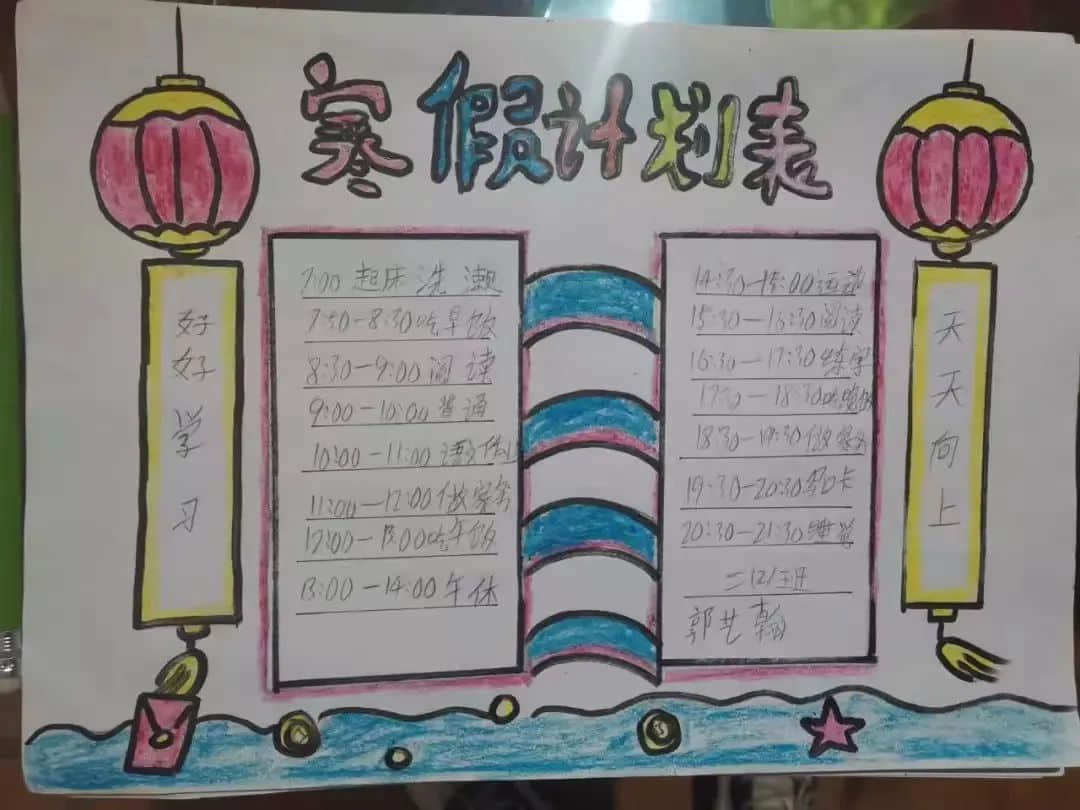 寒假计划表
好好学习
7:00 起床洗濑
7:50-8:30吃早饭
8:30-9:00阅读
9:00-10:00普通
10:00-11:00语
11:00-12:00做家务
12:00-13:00吃午饭
13:00-14:00午休
14:30-15:00运动
15:30-16:30阅读
16:30-17:30练字
-18:30吃晚饭
18:30-19:30做家务
19:30-20:30打卡
20:30-21:30睡觉
二(2)班
郭艺翰
天天向上